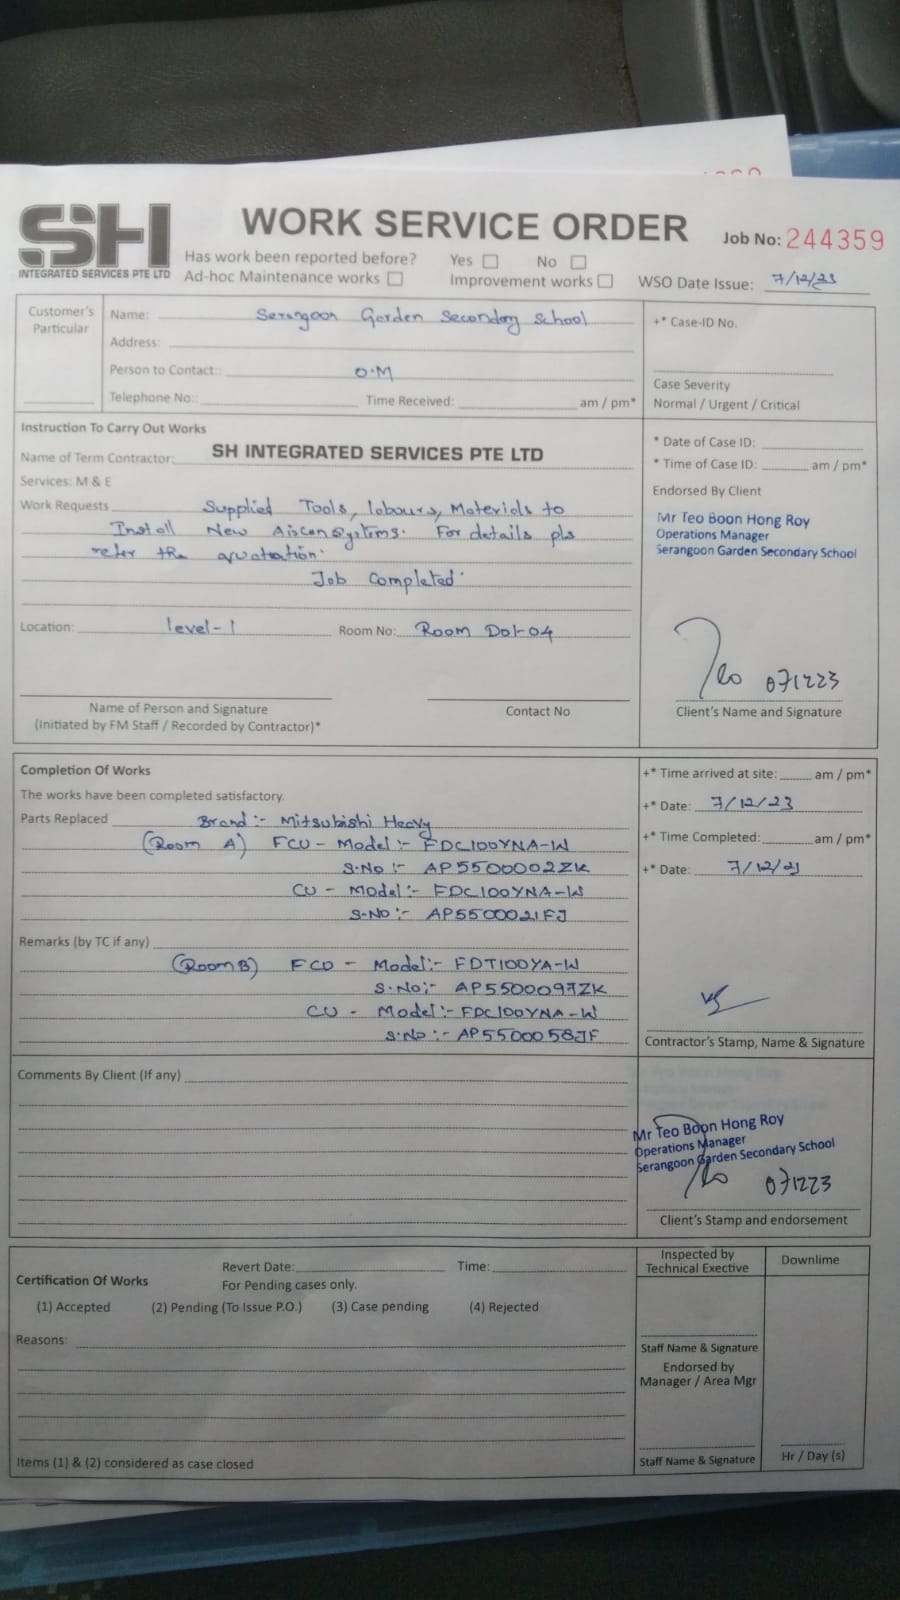 SH
INTEGRATED SERVICES PTE LTD
WORK SERVICE ORDER
Job No: 244359
Has work been reported before? Yes No
Ad-hoc Maintenance works Improvement works
WSO Date Issue: 7/12/23
Customer's Particular
Name: Serangoon Garden Secondary School
Address:
Person to Contact:: O.M
Telephone No:: Time Received: am / pm*
+* Case-ID No.
Case Severity
Normal / Urgent / Critical
Instruction To Carry Out Works
Name of Term Contractor: SH INTEGRATED SERVICES PTE LTD
Services: M & E
Work Requests Supplied Tools, labours, Materials to
Install New Aircon Systems. For details pls
refer the quotation.
Job Completed.
Location: level-1 Room No: Room D01-04
Name of Person and Signature
(Initiated by FM Staff / Recorded by Contractor)*
Contact No
* Date of Case ID:
* Time of Case ID: am / pm*
Endorsed By Client
Mr Teo Boon Hong Roy
Operations Manager
Serangoon Garden Secondary School
Teo 071223
Client's Name and Signature
Completion Of Works
The works have been completed satisfactory.
Parts Replaced Brand:- Mitsubishi Heavy
(Room A) FCU - Model:- FDC100YNA-W
S.No:- AP5500002ZK
CU - Model:- FDC100YNA-W
S.No:- AP5500021FJ
Remarks (by TC if any)
(Room B) FCU - Model:- FDT100YA-W
S.No:- AP5500097ZK
CU - Model:- FDC100YNA-W
S.No:- AP5500058JF
+* Time arrived at site: am / pm*
+* Date: 7/12/23
+* Time Completed: am / pm*
+* Date: 7/12/23
Contractor's Stamp, Name & Signature
Comments By Client (If any)
Mr Teo Boon Hong Roy
Operations Manager
Serangoon Garden Secondary School
Teo 071223
Client's Stamp and endorsement
Certification Of Works
Revert Date: Time:
For Pending cases only.
(1) Accepted (2) Pending (To Issue P.O.) (3) Case pending (4) Rejected
Reasons:
Items (1) & (2) considered as case closed
Inspected by
Technical Exective
Staff Name & Signature
Endorsed by
Manager / Area Mgr
Staff Name & Signature
Downlime
Hr / Day (s)